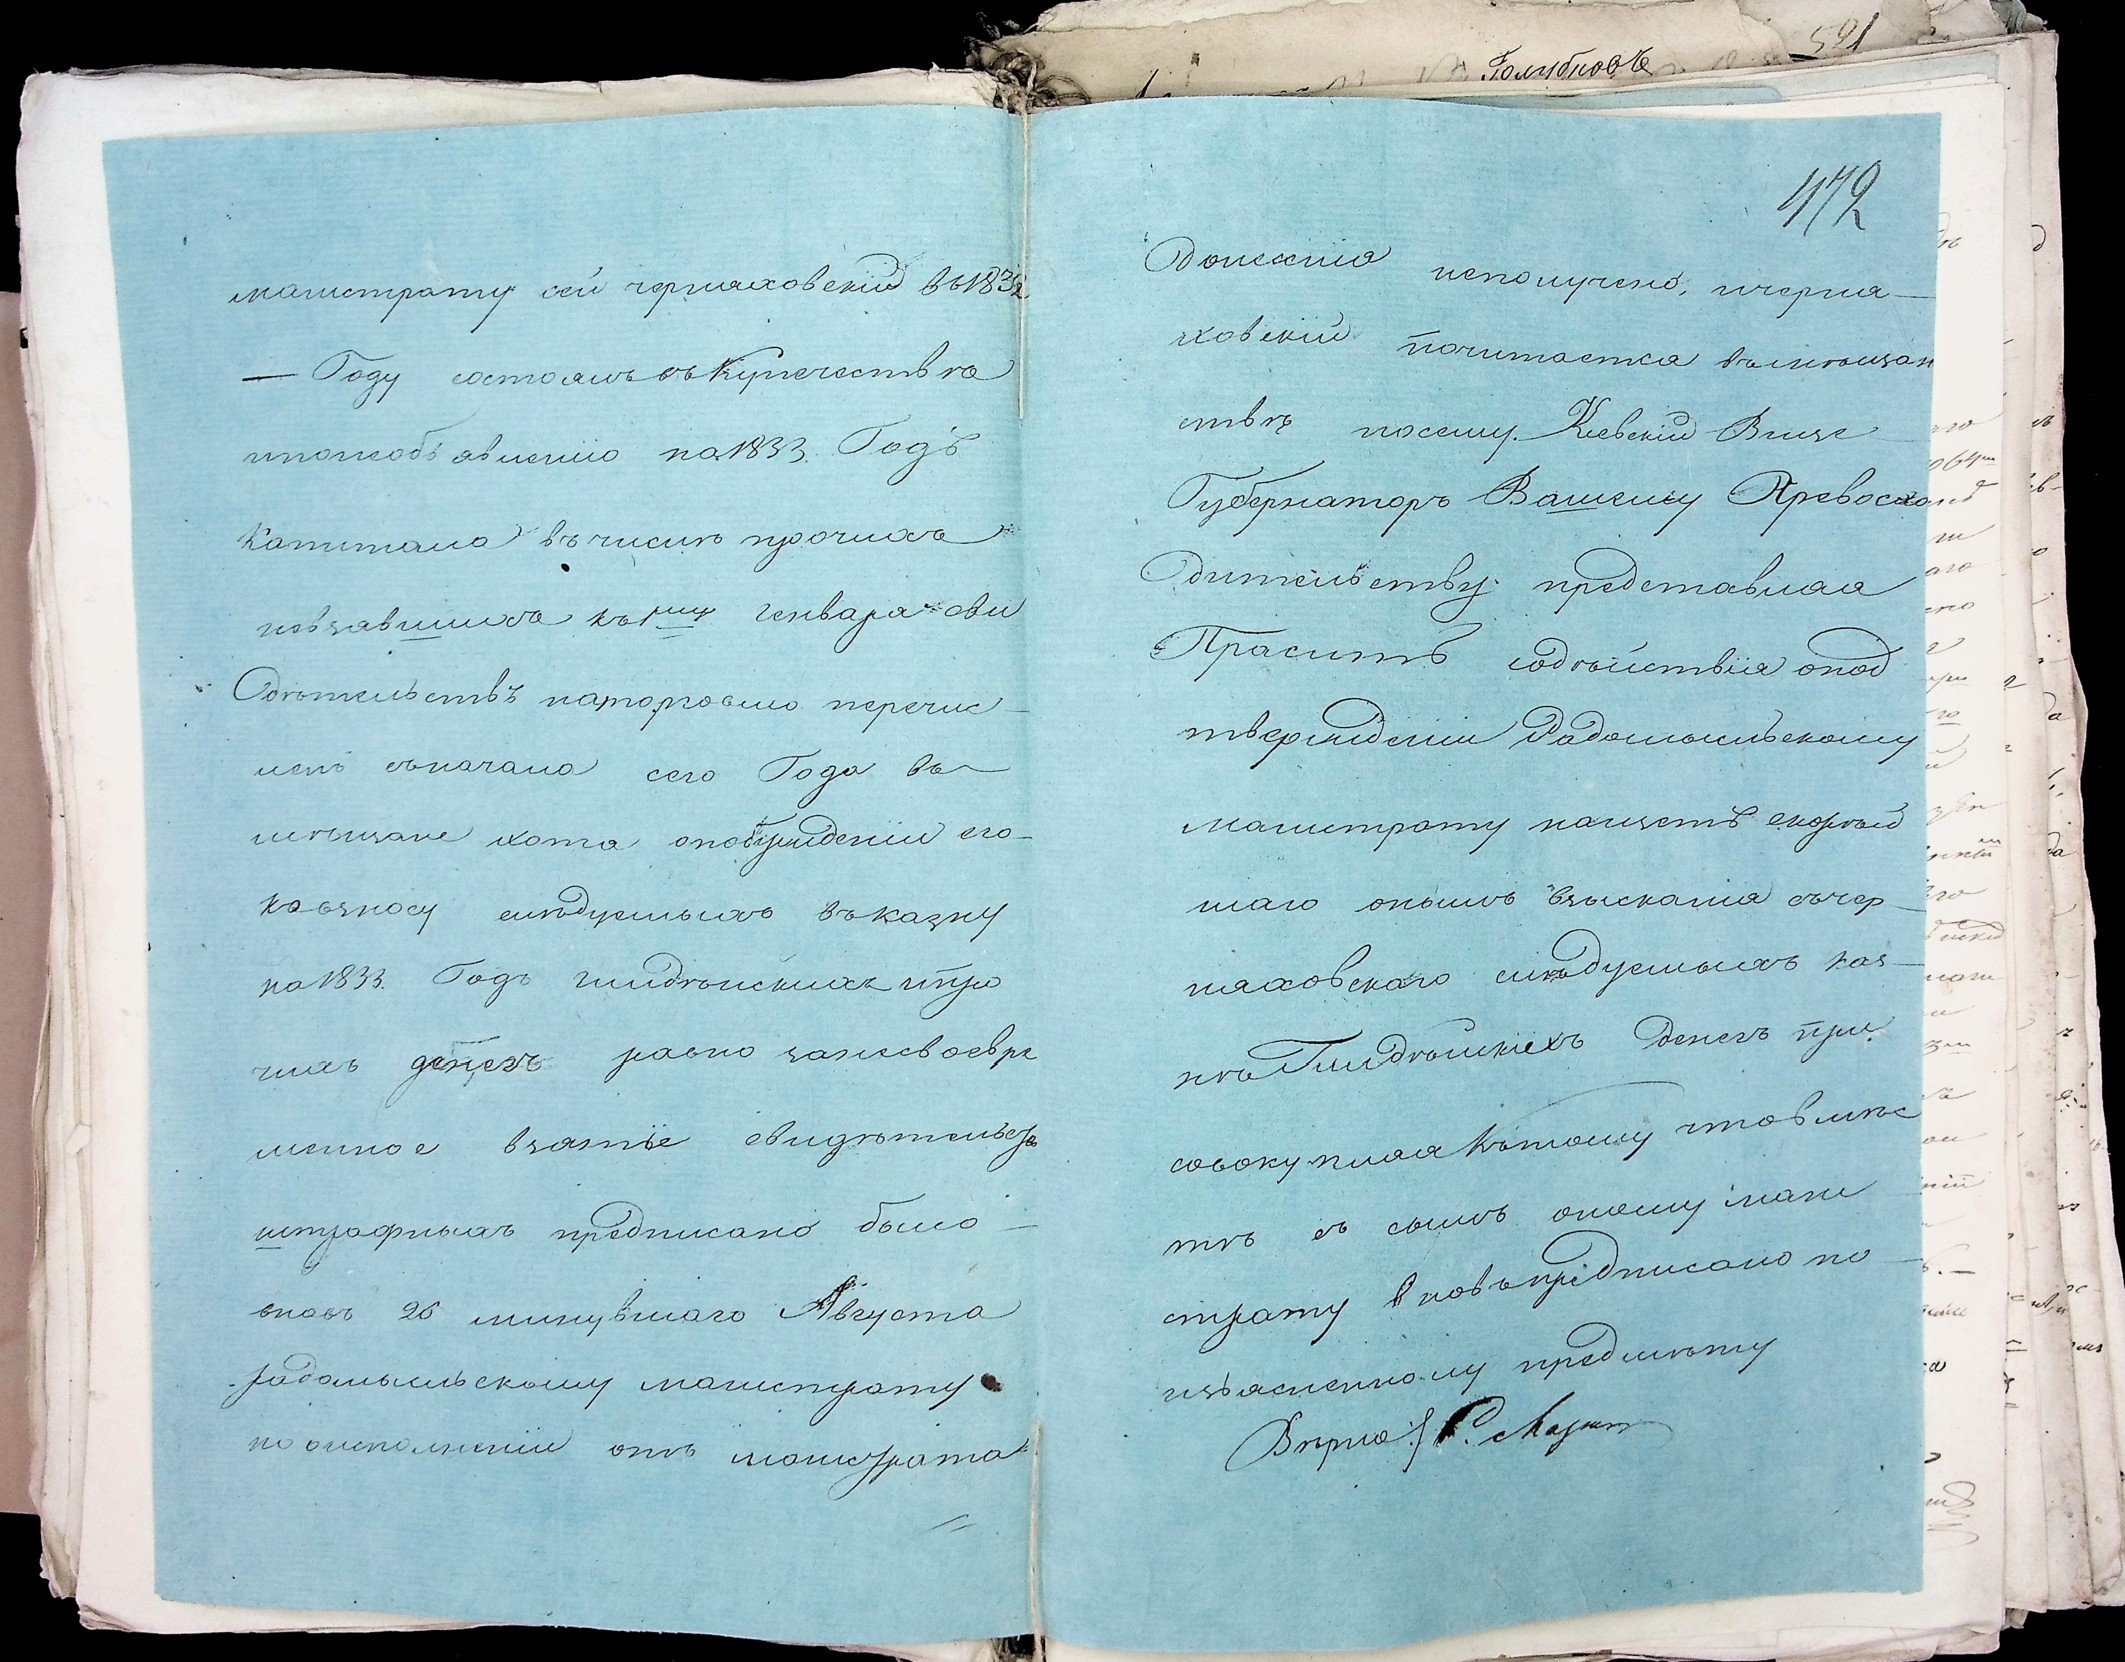 Голубковъ
591
магистрату сей черняховскій въ 1832
— Году состоялъ въ Купечествѣ
и понеобъявленію на 1833. Годъ
Капитала въ числѣ прочихъ
невзявшихъ къ 1му генваря сви
Одѣтельствъ наторговлю перечис
ленъ сначала сего Года въ
мѣщане хотя опобужденіи его
квзносу слѣдуемыхъ въ казну
на 1833. Годъ гилдѣйскихъ ипро
чихъ денегъ равно занесвоевре
менное взятіе свидѣтельства
штрафныхъ предписано было
вновь 26 минувшаго Августа
радомысльскому магистрату
но оисполненіи отъ магистрата
472
Донесенія неполучено, ичерня
ховскій почитается вмѣщан
ствѣ посему Кіевскій Вице
Губернаторъ Вашему Превосхо
Дительству представляя
Проситъ содѣйствія опод
твержденіи Радомысльскому
магистрату начетъ скорѣй
шаго онымъ взысканія счер
няховскаго слѣдуемыхъ каз
нѣ Гилдѣйскихъ Денегъ при
совокупляя Ктому чтовмѣс
тѣ съ симъ оному маги
страту вновь предписано по
изъясненному предмѣту
Вѣрно: